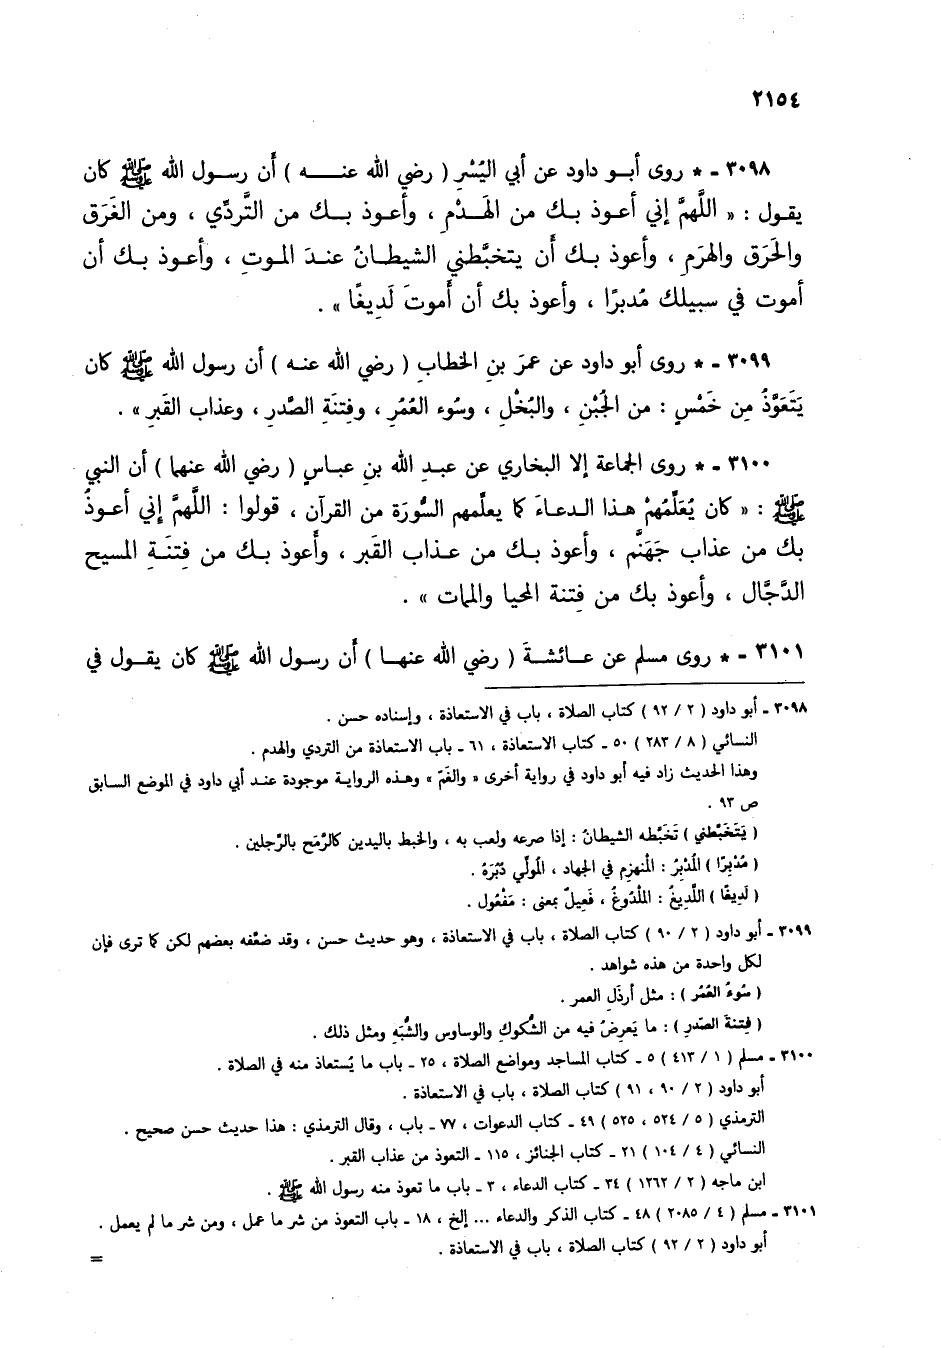 ٢١٥٤
٣٠٩٨ - * روى أبو داود عن أبي اليُسْرِ ( رضي الله عنه ) أَن رسول الله ﷺ كان
يقول : « اللَّهمَّ إني أعوذ بك من الهَدْمِ ، وأعوذ بك من التَّردِّي ، ومن الغَرَق
والحَرَق والهرَمِ ، وأعوذ بك أن يتخبَّطني الشيطانُ عندَ الموتِ ، وأعوذ بك أن
أموت في سبيلك مُدبرًا ، وأعوذ بك أن أموتَ لَدِيغًا » .
٣٠٩٩ - * روى أبو داود عن عمرَ بنِ الخطابِ ( رضي الله عنه ) أن رسول الله ﷺ كان
يَتَعَوَّذُ مِن خَمْسٍ : من الجُبْنِ ، والبُخْلِ ، وسُوء العُمُرِ ، وفِتنَةِ الصَّدرِ ، وعذاب القَبرِ » .
٣١٠٠ - * روى الجماعة إلا البخاري عن عبدِ الله بنِ عباسٍ ( رضي الله عنهما ) أن النبي
ﷺ : « كان يُعَلِّمُهمْ هذا الدعاءَ كما يعلِّمهم السُّورَة من القرآن ، قولوا : اللَّهمَّ إني أعوذُ
بك من عذاب جَهَنَّم ، وأعوذ بك من عذاب القَبر ، وأَعوذ بك من فِتنَةِ المسيح
الدَّجَّال ، وأعوذ بك من فِتنة المحيا والممات » .
٣١٠١ - * روى مسلم عن عائشةَ ( رضي الله عنها ) أَن رسول الله ﷺ كان يقول في
٣٠٩٨ - أبو داود ( ٢ / ٩٢ ) كتاب الصلاة ، باب في الاستعاذة ، وإسناده حسن .
النسائي ( ٨ / ٢٨٣ ) ٥٠ - كتاب الاستعاذة ، ٦١ - باب الاستعاذة من التردي والهدم .
وهذا الحديث زاد فيه أبو داود في رواية أخرى « والغَمّ » وهذه الرواية موجودة عند أبي داود في الموضع السابق
ص ٩٣ .
( يَتَخَبَّطني ) تَخَبَّطه الشيطانُ : إذا صرعه ولعب به ، والخبط باليدين كالرَّمَح بالرِّجلين .
( مُدْبِرًا ) المُدْبِرُ : المُنهزِم في الجهاد ، المُولِّي دُبُرَهُ .
( لَدِيغًا ) اللَّدِيغُ : المَلْدُوغُ ، فَعِيلٌ بمعنى : مَفْعُول .
٣٠٩٩ - أبو داود ( ٢ / ٩٠ ) كتاب الصلاة ، باب في الاستعاذة ، وهو حديث حسن ، وقد ضعَّفه بعضهم لكن كما ترى فإن
لكل واحدة من هذه شواهد .
( سُوءُ العُمُر ) : مثل أرذَل العمر .
( فِتنَة الصّدرِ ) : ما يَعرِضُ فيه من الشُّكوكِ والوساوس والشُّبَهِ ومثل ذلك .
٣١٠٠ - مسلم ( ١ / ٤١٣ ) ٥ - كتاب المساجد ومواضع الصلاة ، ٢٥ - باب ما يُستعاذ منه في الصلاة .
أبو داود ( ٢ / ٩٠ ، ٩١ ) كتاب الصلاة ، باب في الاستعاذة .
الترمذي ( ٥ / ٥٢٤ ، ٥٢٥ ) ٤٩ - كتاب الدعوات ، ٧٧ - باب ، وقال الترمذي : هذا حديث حسن صحيح .
النسائي ( ٤ / ١٠٤ ) ٢١ - كتاب الجنائز ، ١١٥ - التعوذ من عذاب القبر .
ابن ماجه ( ٢ / ١٢٦٢ ) ٣٤ - كتاب الدعاء ، ٣ - باب ما تعوذ منه رسول الله ﷺ .
٣١٠١ - مسلم ( ٤ / ٢٠٨٥ ) ٤٨ - كتاب الذكر والدعاء ... إلخ ، ١٨ - باب التعوذ من شر ما عمل ، ومن شر ما لم يعمل .
أبو داود ( ٢ / ٩٢ ) كتاب الصلاة ، باب في الاستعاذة .
=